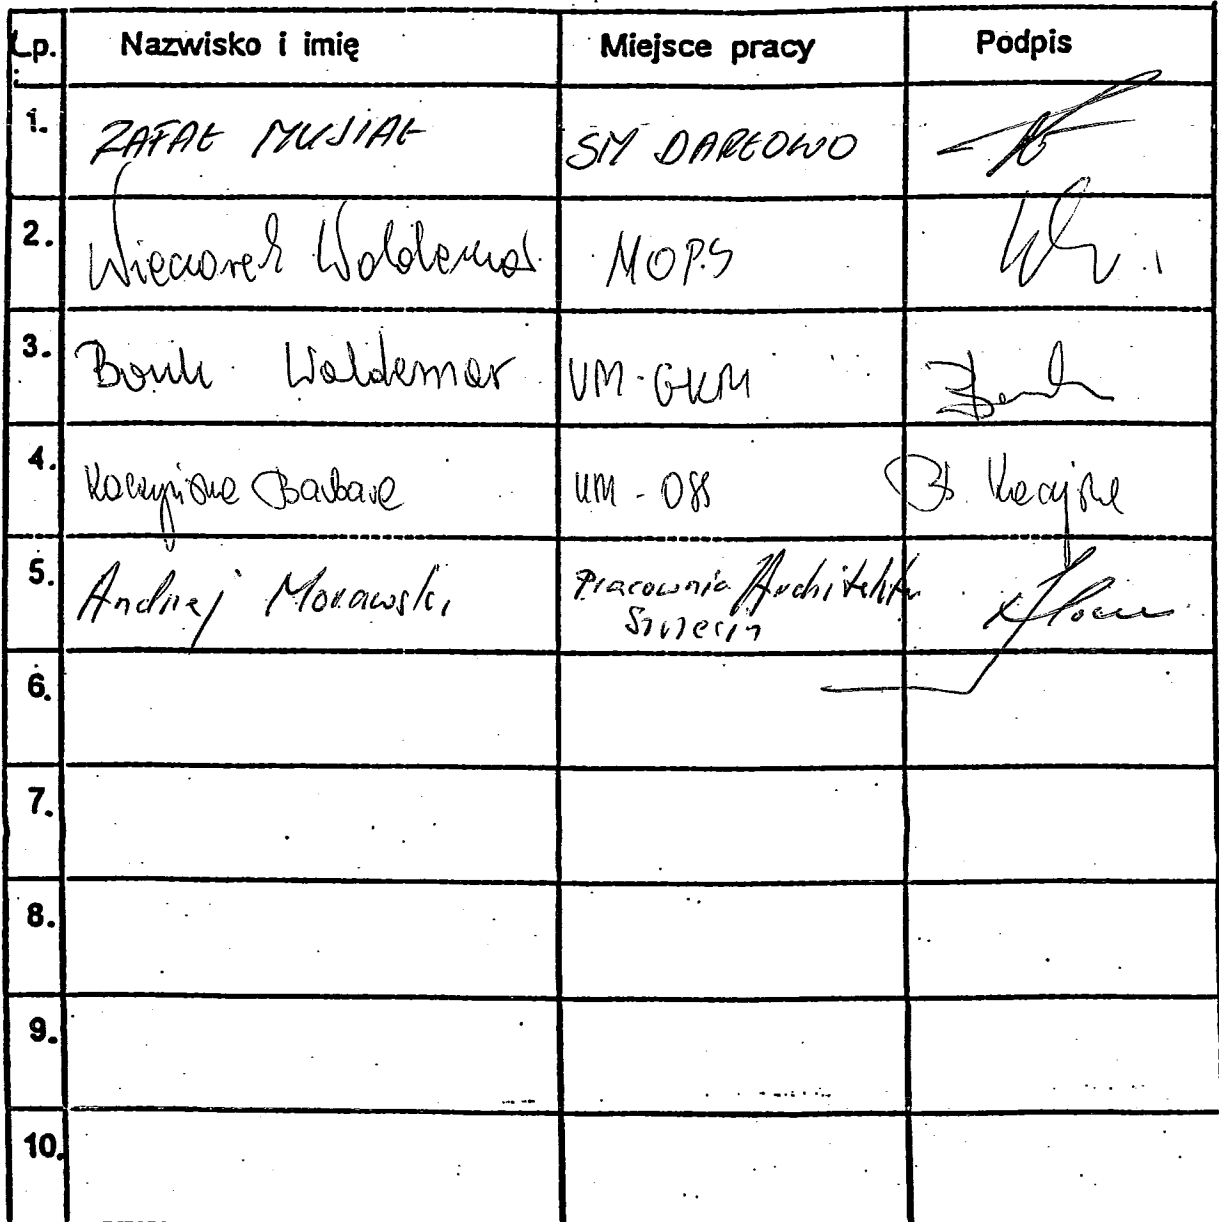 Lp. Nazwisko i imię Miejsce pracy Podpis
1. RAFAŁ MUSIAŁ SM DARŁOWO
2. Wieczorek Waldemar MOPS
3. Bonk Waldemar UM-GKM
4. Kaczyńska Barbara UM - OSS B. Kaczyńska
5. Andrzej Morawski Pracownia Architekt.
Szczecin
6.
7.
8.
9.
10.